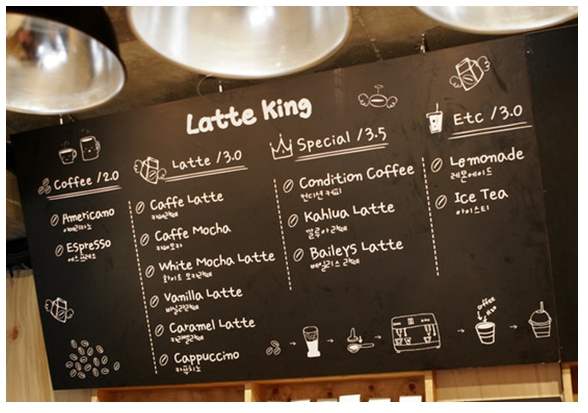 Latte King
Coffee /2.0
Americano
아메리카노
Espresso
에스프레소
Latte /3.0
Caffe Latte
카페라떼
Caffe Mocha
카페모카
White Mocha Latte
화이트 모카라떼
Vanilla Latte
바닐라라떼
Caramel Latte
카라멜라떼
Cappuccino
카푸치노
Special /3.5
Condition Coffee
컨디션 커피
Kahlua Latte
깔루아 라떼
Baileys Latte
베일리스 라떼
Etc /3.0
Lemonade
레몬에이드
Ice Tea
아이스티
coffee